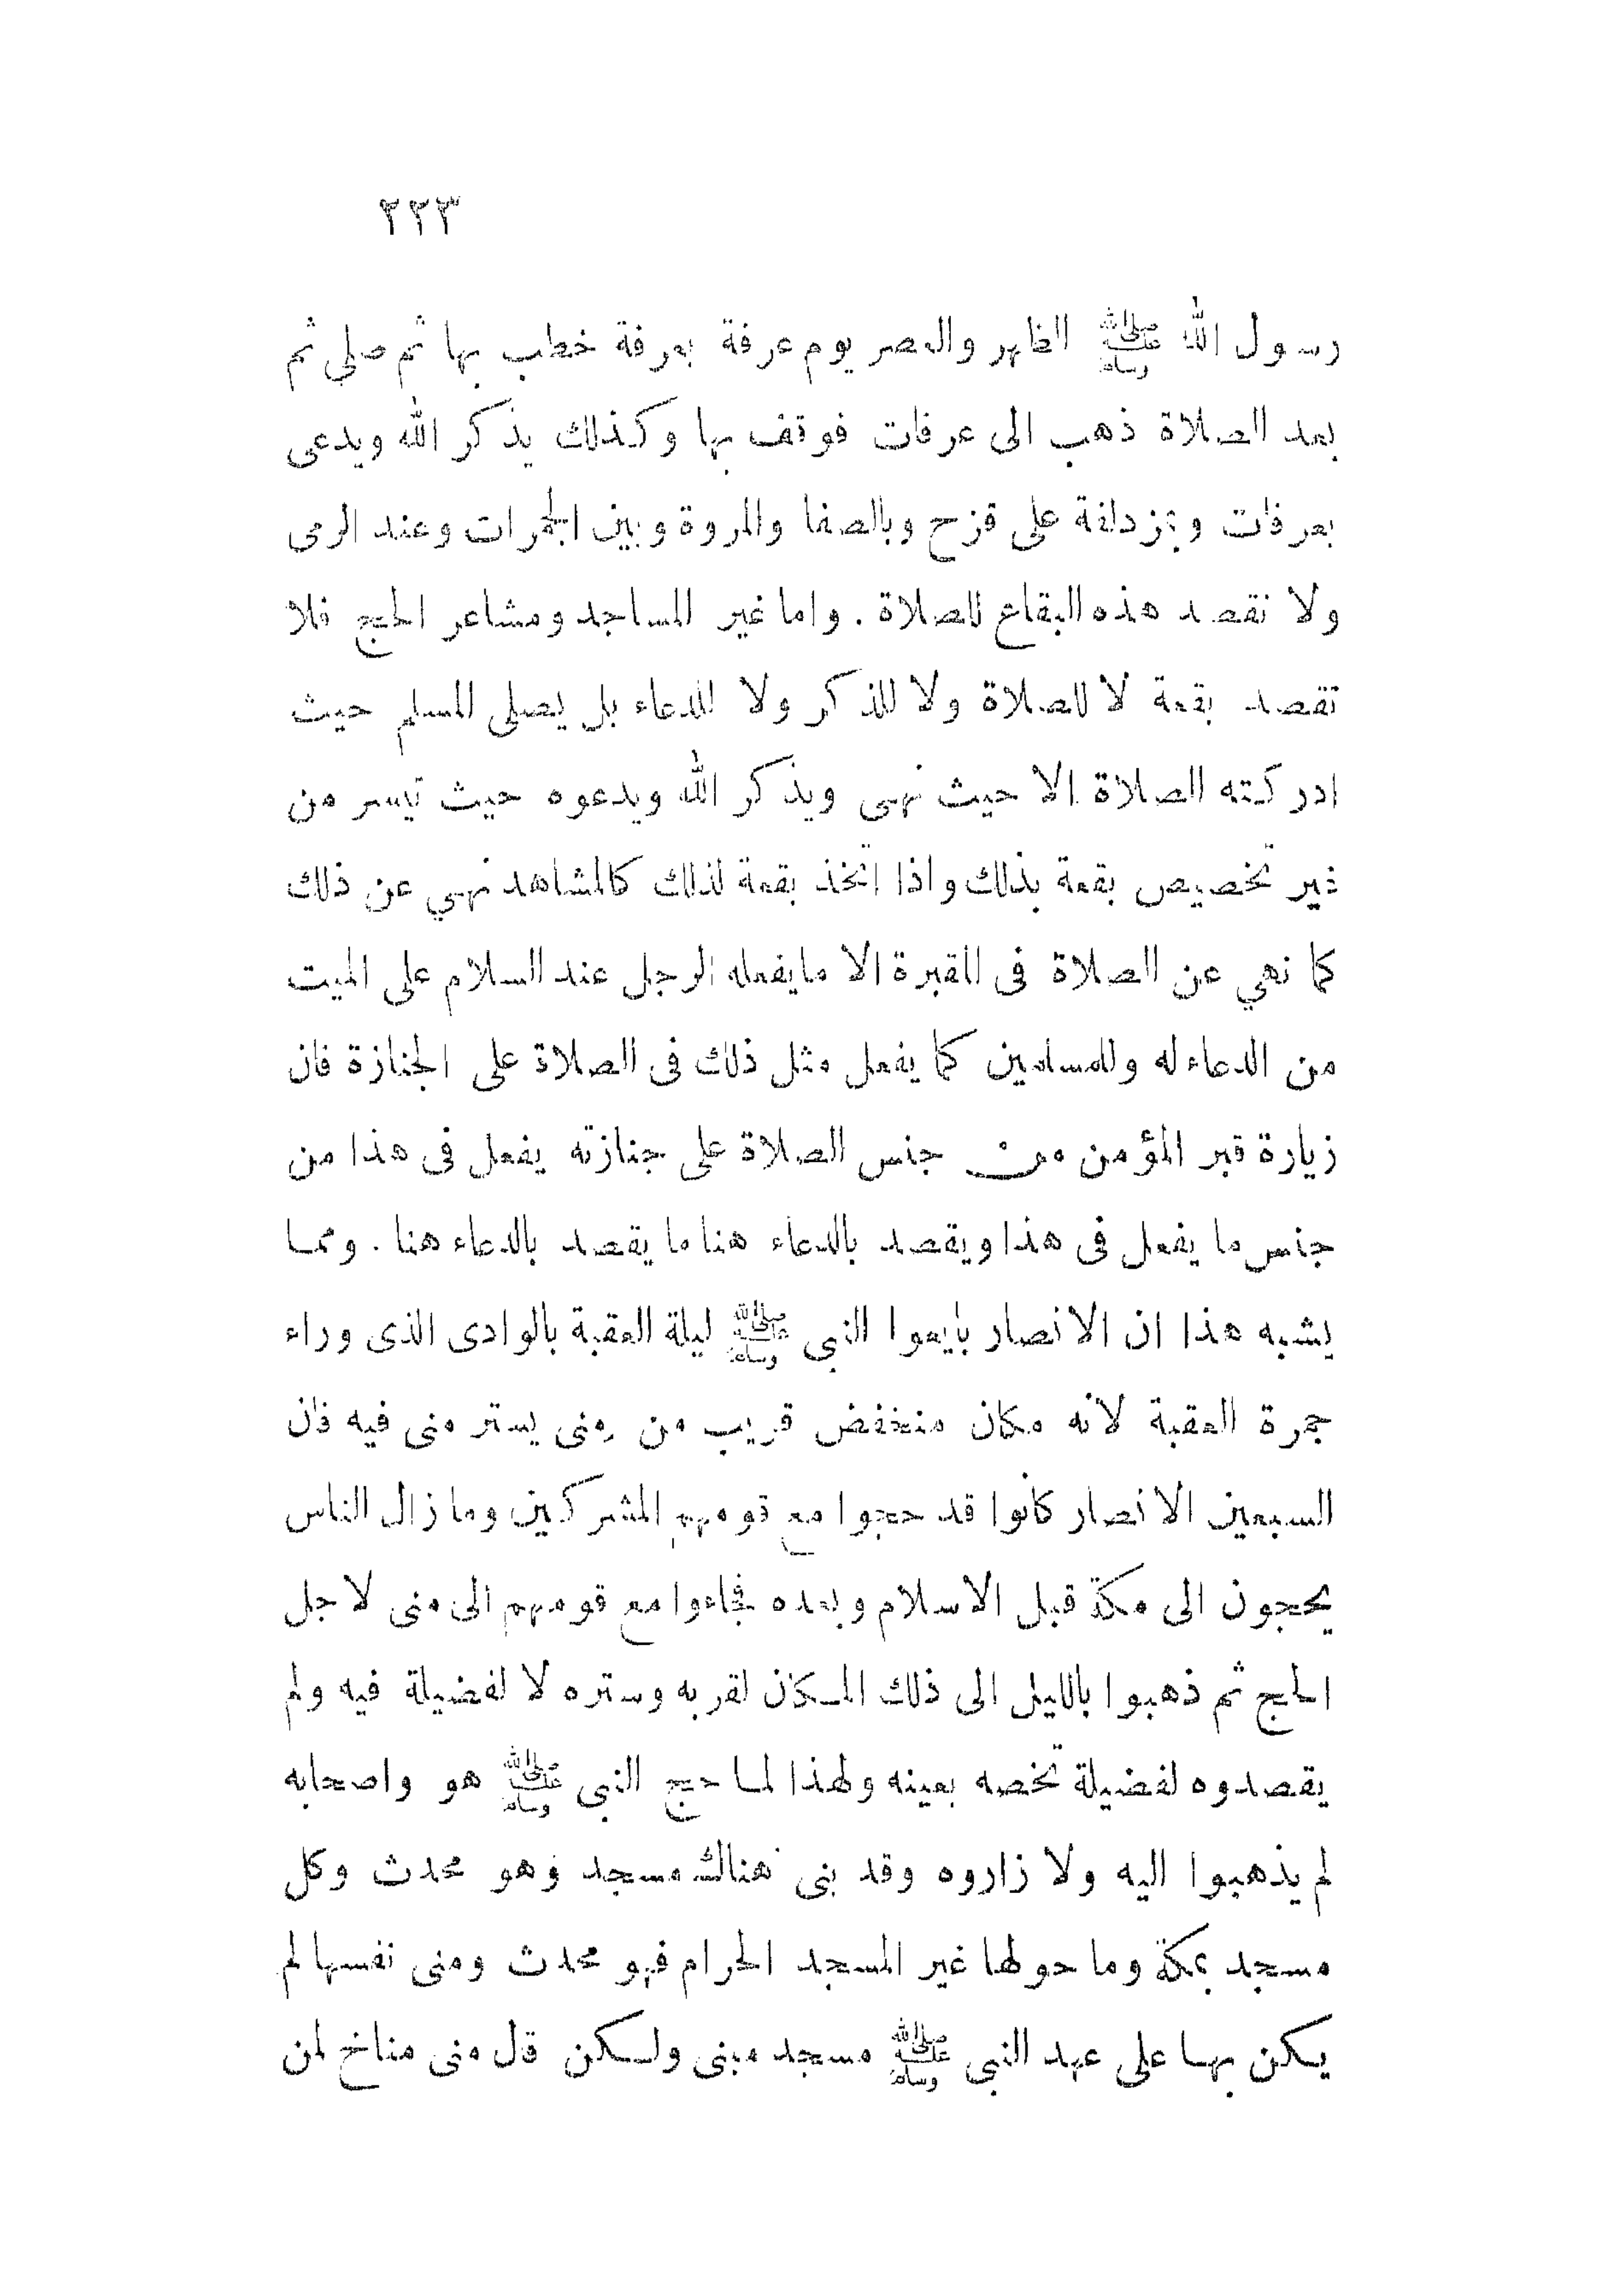 ٢٢٣
رسول الله ﷺ الظهر والعصر يوم عرفة بعرفة خطب بها ثم صلى ثم
بعد الصلاة ذهب الى عرفات فوقف بها وكذلك يذكر الله ويدعى
بعرفات وبمزدلفة على قزح وبالصفا والمروة وبين الجمرات وعند الرمى
ولا نقصد هذه البقاع للصلاة . واما غير المساجد ومشاعر الحج فلا
تقصد بقعة لا للصلاة ولا للذكر ولا للدعاء بل يصلى المسلم حيث
ادركته الصلاة الا حيث نهى ويذكر الله ويدعوه حيث تيسر من
غير تخصيص بقعة بذلك واذا اتخذ بقعة لذلك كالمشاهد نهي عن ذلك
كما نهي عن الصلاة فى المقبرة الا ما يفعله الرجل عند السلام على الميت
من الدعاء له وللمسلمين كما يفعل مثل ذلك فى الصلاة على الجنازة فان
زيارة قبر المؤمن من جنس الصلاة على جنازته يفعل فى هذا من
جنس ما يفعل فى هذا ويقصد بالدعاء هنا ما يقصد بالدعاء هنا . ومما
يشبه هذا ان الانصار بايعوا النبي ﷺ ليلة العقبة بالوادى الذى وراء
جمرة العقبة لانه مكان منخفض قريب من منى يستر منى فيه فان
السبعين الانصار كانوا قد حجوا مع قومهم المشركين وما زال الناس
يحجون الى مكة قبل الاسلام وبعده فجاءوا مع قومهم الى منى لاجل
الحج ثم ذهبوا بالليل الى ذلك المكان لقربه وستره لا لفضيلة فيه ولم
يقصدوه لفضيلة تخصه بعينه ولهذا لما حج النبي ﷺ هو واصحابه
لم يذهبوا اليه ولا زاروه وقد بنى هناك مسجد وهو محدث وكل
مسجد بمكة وما حولها غير المسجد الحرام فهو محدث ومنى نفسها لم
يكن بها على عهد النبي ﷺ مسجد مبنى ولكن قال منى مناخ لمن